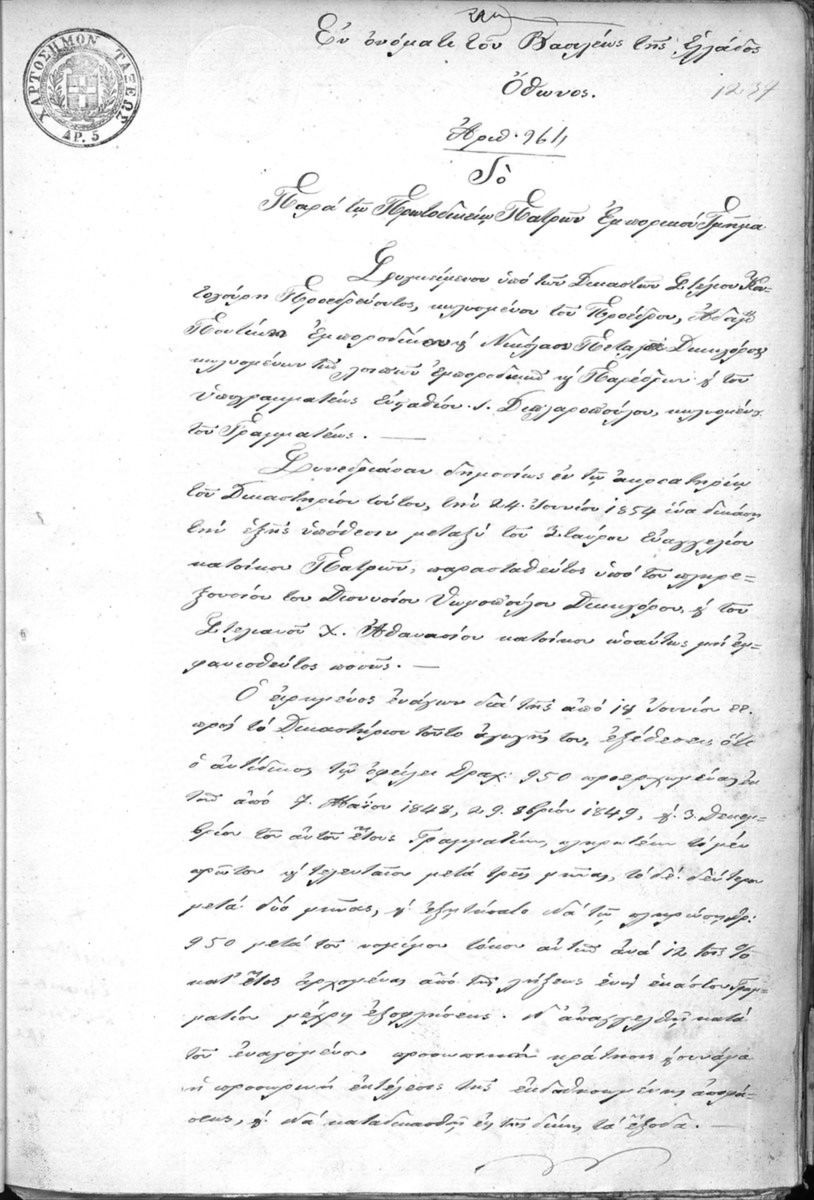 ΧΑΡΤΟΣΗΜΟΝ ΤΑΞΕΩΣ
ΔΡ. 5
Ἐν ὀνόματι τοῦ Βασιλέως τῆς Ἑλλάδος
Ὄθωνος.
1237
Ἀριθ. 964
Τὸ
Παρὰ τῷ Πρωτοδικείῳ Πατρῶν Ἐμπορικὸν Τμῆμα
Συγκείμενον ὑπὸ τῶν Δικαστῶν
Προεδρεύοντος, κωλυομένου τοῦ Προέδρου,
Ἐμποροδίκου καὶ Νικολάου Δικηγόρου
κωλυομένων τῶν λοιπῶν ἐμποροδικῶν καὶ Παρέδρων καὶ τοῦ
ὑπογραμματέως Εὐσταθίου κωλυομένου
τοῦ Γραμματέως. —
Συνεδριάσαν δημοσίως ἐν τῷ ἀκροατηρίῳ
τοῦ Δικαστηρίου τούτου, τὴν 24 Ἰουνίου 1854 ἵνα δικάσῃ
τὴν ἑξῆς ὑπόθεσιν μεταξὺ τοῦ Σταύρου Εὐαγγελίου
κατοίκου Πατρῶν, παρασταθέντος ὑπὸ τοῦ πληρε=
ξουσίου του Διονυσίου Θωμοπούλου Δικηγόρου, καὶ τοῦ
Στελιανοῦ Χ. Ἀθανασίου κατοίκου ὡσαύτως μὴ ἐμ=
φανισθέντος ποσῶς. —
Ὁ εἰρημένος ἐνάγων διὰ τῆς ἀπὸ Ἰουνίου
πρὸς τὸ Δικαστήριον τοῦτο ἀγωγῆς του, ἐξέθεσεν ὅτι
ὁ ἀντίδικος τῷ ὀφείλει δραχ: 950 προερχομένας ἐκ
τῶν ἀπὸ 7. Μαΐου 1848, 29. 8βρίου 1849, καὶ 3. Δεκεμ=
βρίου τοῦ αὐτοῦ ἔτους Γραμματίων, πληρωτέων τὸ μὲν
πρῶτον καὶ τελευταῖον μετὰ τρεῖς μῆνας, τὸ δὲ δεύτερον
μετὰ δύο μῆνας, καὶ ἐξητήσατο νὰ τῷ πληρώσῃ δρ:
950 μετὰ τοῦ νομίμου τόκου αὐτῶν ἀνὰ 12 τοῖς %
κατ' ἔτος ἀρχομένου ἀπὸ τῆς λήξεως ἑνὸς ἑκάστου Γραμ=
ματίου μέχρις ἐξοφλήσεως. Ν' ἀπαγγελθῇ κατὰ
τοῦ ἐναγομένου προσωπικὴ κράτησις καὶ συνάμα
ἡ προσωρινὴ ἐκτέλεσις τῆς ἐκδοθησομένης ἀποφά=
σεως, καὶ νὰ καταδικασθῇ εἰς τῆς δίκης τὰ ἔξοδα. —